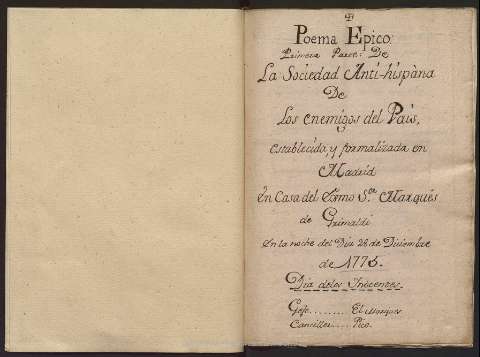 Poema Epico
Primera Parte: De
La Sociedad Anti-hispàna
De
Los enemigos del Pais,
establecida, y formalizada en
Madrid
En Casa del Exmo Sor Marqués
de Grimaldi
en la noche del Dia 28 de Diciembre
de 1776.
Dia delos Inocentes.
Gefe ......... El Marques
Canciller ..... Pico